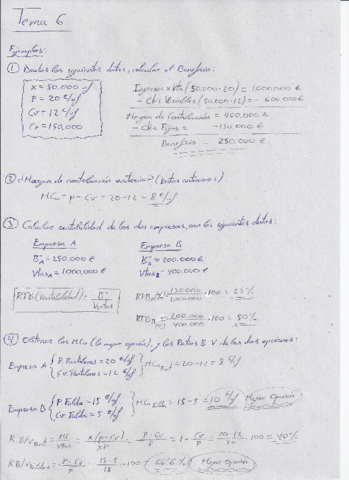 Tema 6
Ejemplos:
① Dados los siguientes datos, calcular el Beneficio:
x = 50,000 u/f
P = 20 €/u/f
Cv = 12 €/u/f
CF = 150,000
Ingresos x Vta (50,000·20) = 1000,000 €
- Ctes Variables (50,000·12) = - 600.000 €
Margen de Contribución = 400,000 €
- Ctes Fijos = -150,000 €
Beneficio = 250.000 €
② ¿Margen de contribución unitario? (datos anteriores).
MCu = p - Cv = 20 - 12 = 8 €/u/f
③ Calcular rentabilidad de las dos empresas, con los siguientes datos:
Empresa A
Bº A = 250.000 €
Vtas A = 1000,000 €
Empresa B
Bº B = 200.000 €
Vtas B = 400.000 €
RTB (Rentabilidad) = Bº / Ventas
RTB A = 250.000 / 1000.000 · 100 = 25 %
RTB B = 200.000 / 400.000 · 100 = 50 %
④ Obtener los MCu (la mejor opción), y los Ratios B V de las dos opciones:
Empresa A { P. Pantalones = 20 €/u/f
Cv. Pantalones = 12 €/u/f } MCu Pant = 20 - 12 = 8 €/f
Empresa B { P. Falda = 15 €/u/f
Cv Falda = 5 €/u/f } MCu Falda = 15 - 5 = 10 €/u/f Mejor Opción
R B/V Pant = MC / Vtas = x(p-Cv) / xp = P-Cv / P = 1 - Cv / P = 20-12 / 20 · 100 = 40%
R B/V Falda = P-Cv / P = 15-5 / 15 · 100 = 66'6% Mejor Opción